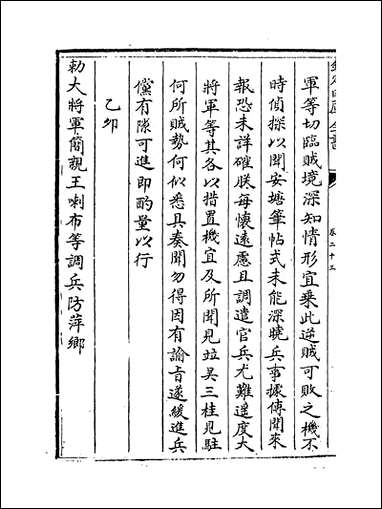 欽定四庫全書
卷二十三
軍等切臨賊境深知情形宜乗此逆賊可敗之機不
時偵探以聞安塘筆帖式未能深曉兵事據傳聞來
報恐未詳確朕每懷遠慮且調遣官兵尤難遥度大
將軍等其各以措置機宜及所聞見竝吳三桂見駐
何所賊勢何似悉具奏聞勿得因有諭㫖遂緩進兵
儻有隙可進即酌量以行
乙卯
勅大將軍簡親王喇布等調兵防萍鄉